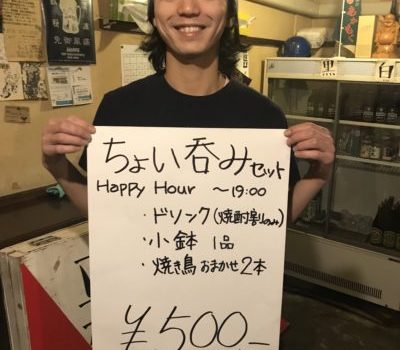 ちょい呑みセット
Happy Hour ～19:00
・ドリンク(焼酎割りのみ)
・小鉢 1品
・焼き鳥 おまかせ2本
¥500-
黒
白